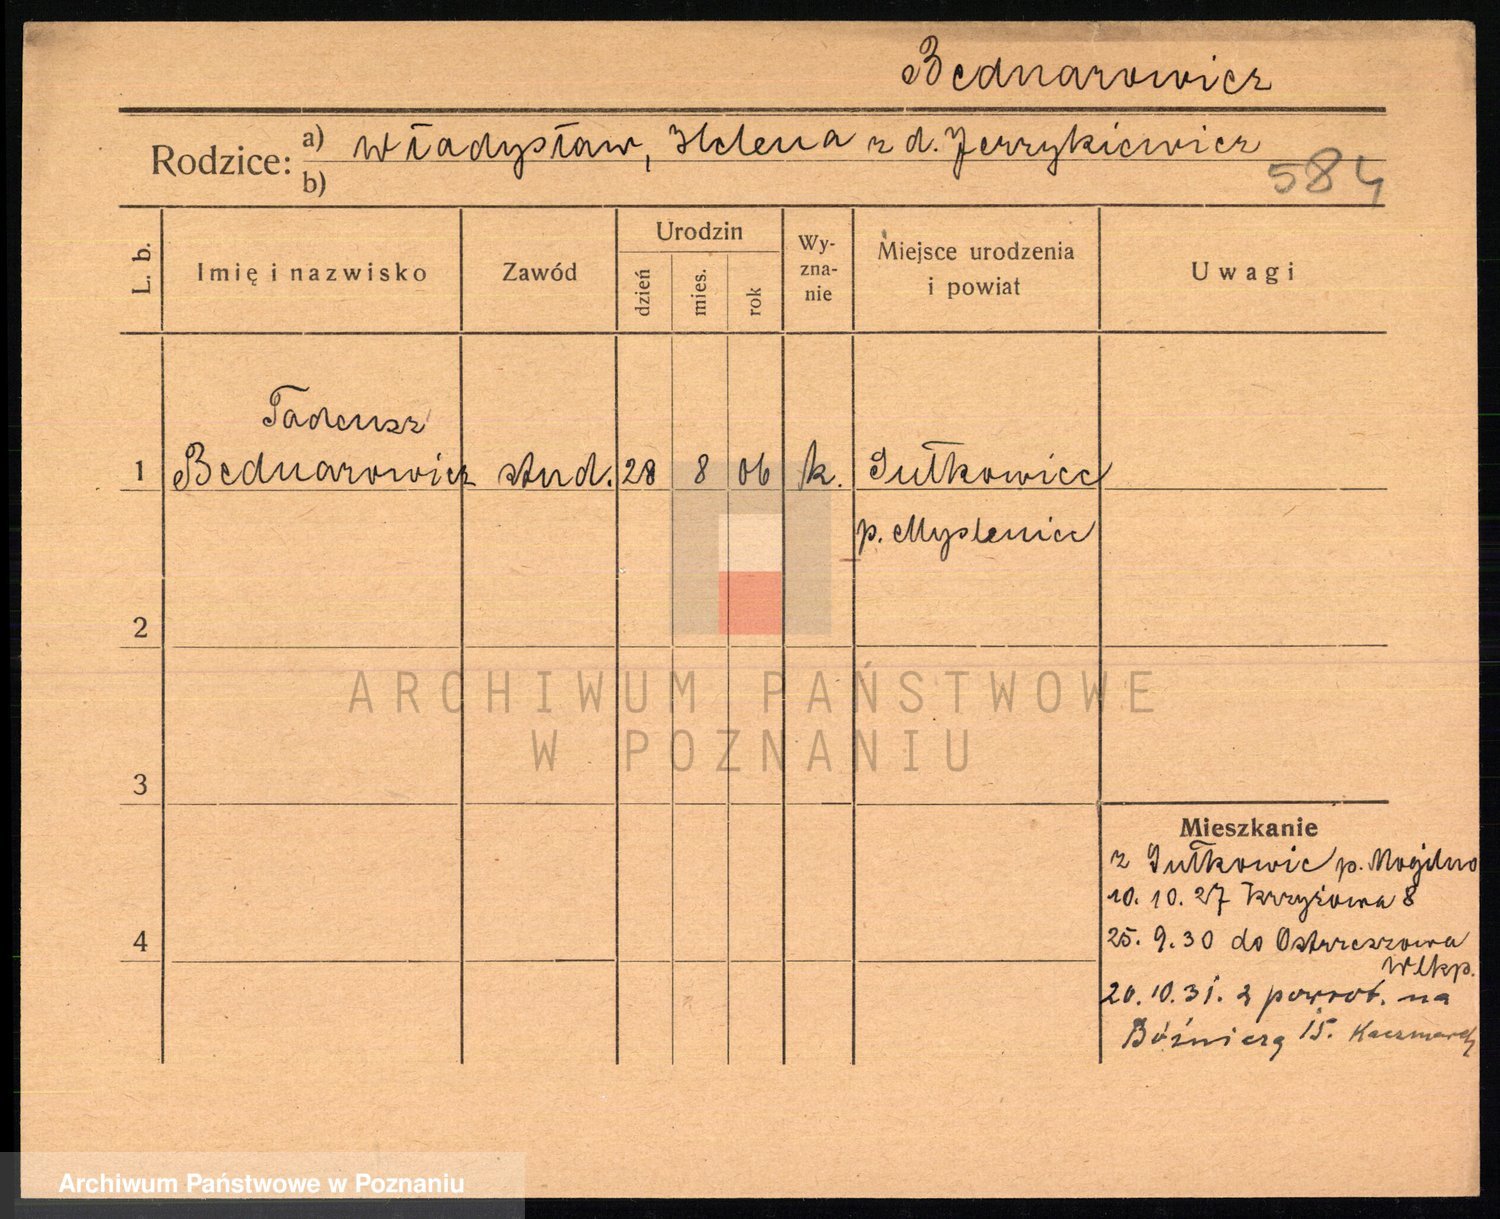 Bednarowicz
Rodzice: a) Władysław, Helena z d. Jerzykiewicz
b)
584
L. b. Imię i nazwisko Zawód Urodzin dzień mies. rok Wy-zna-nie Miejsce urodzenia i powiat Uwagi
Tadeusz
1 Bednarowicz stud. 28 8 06 k. Sułkowice
p. Myslenice
2
ARCHIWUM PAŃSTWOWE
W POZNANIU
3
Mieszkanie
z Sułkowic p. Mogilno
10. 10. 27 Krzyżowa 8
4
25. 9. 30 do Ostrzeszowa
Wlkp.
20. 10. 31. z powrot. na
Bóźnicza 15. Kaczmarek
Archiwum Państwowe w Poznaniu